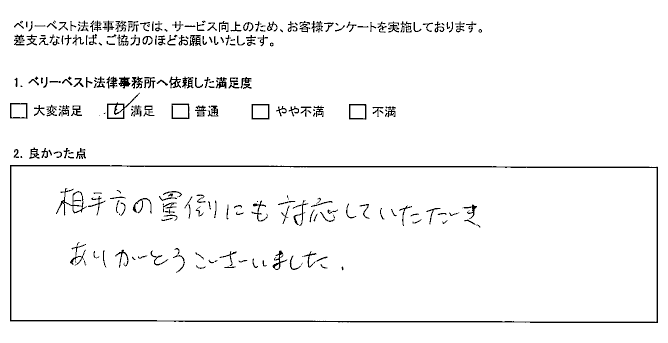 ベリーベスト法律事務所では、サービス向上のため、お客様アンケートを実施しております。
差支えなければ、ご協力のほどお願いいたします。
1. ベリーベスト法律事務所へ依頼した満足度
□ 大変満足 ☑ 満足 □ 普通 □ やや不満 □ 不満
2. 良かった点
相手方の罵倒にも対応していただき
ありがとうございました.